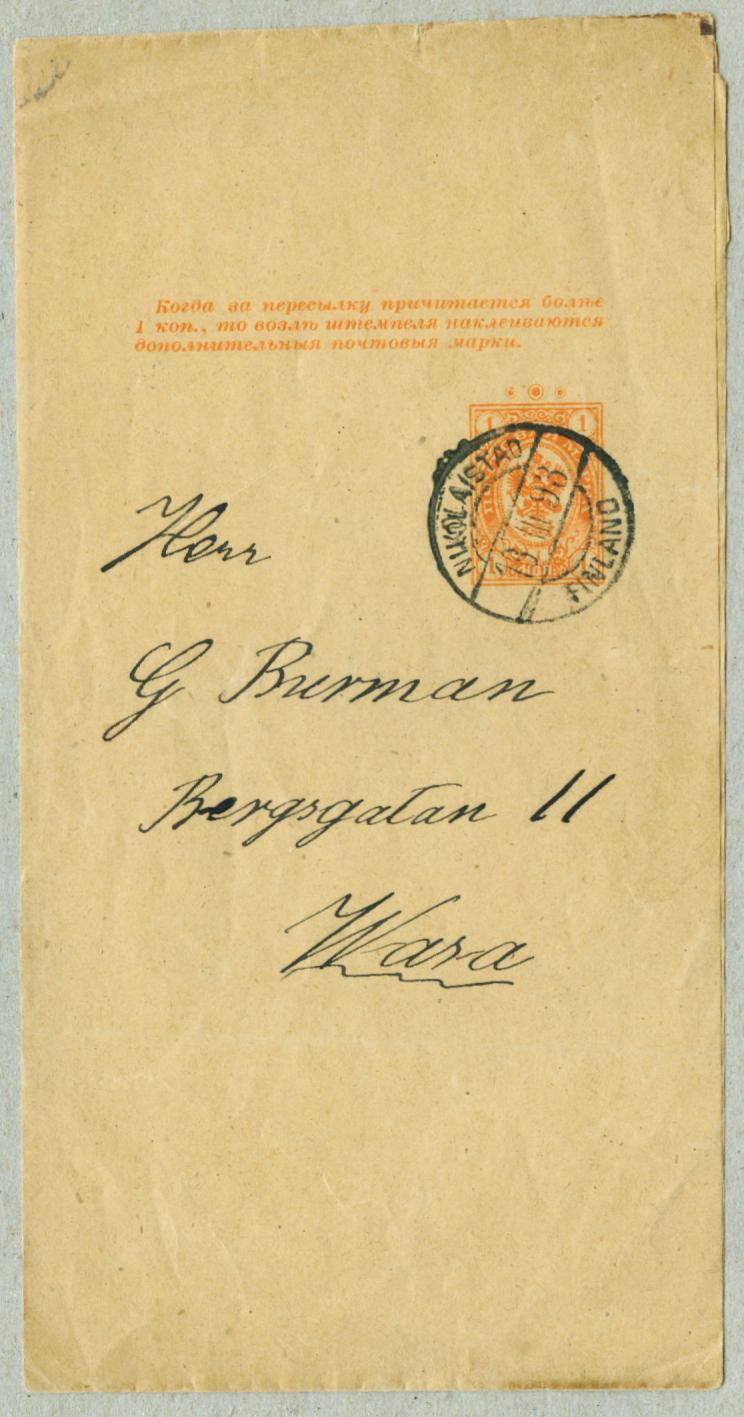 Когда за пересылку причитается болѣе
1 коп., то возлѣ штемпеля наклеиваются
дополнительныя почтовыя марки.
1 1
NIKOLAISTAD
93
FINLAND
Herr
G Burman
Bergsgatan 11
Wasa